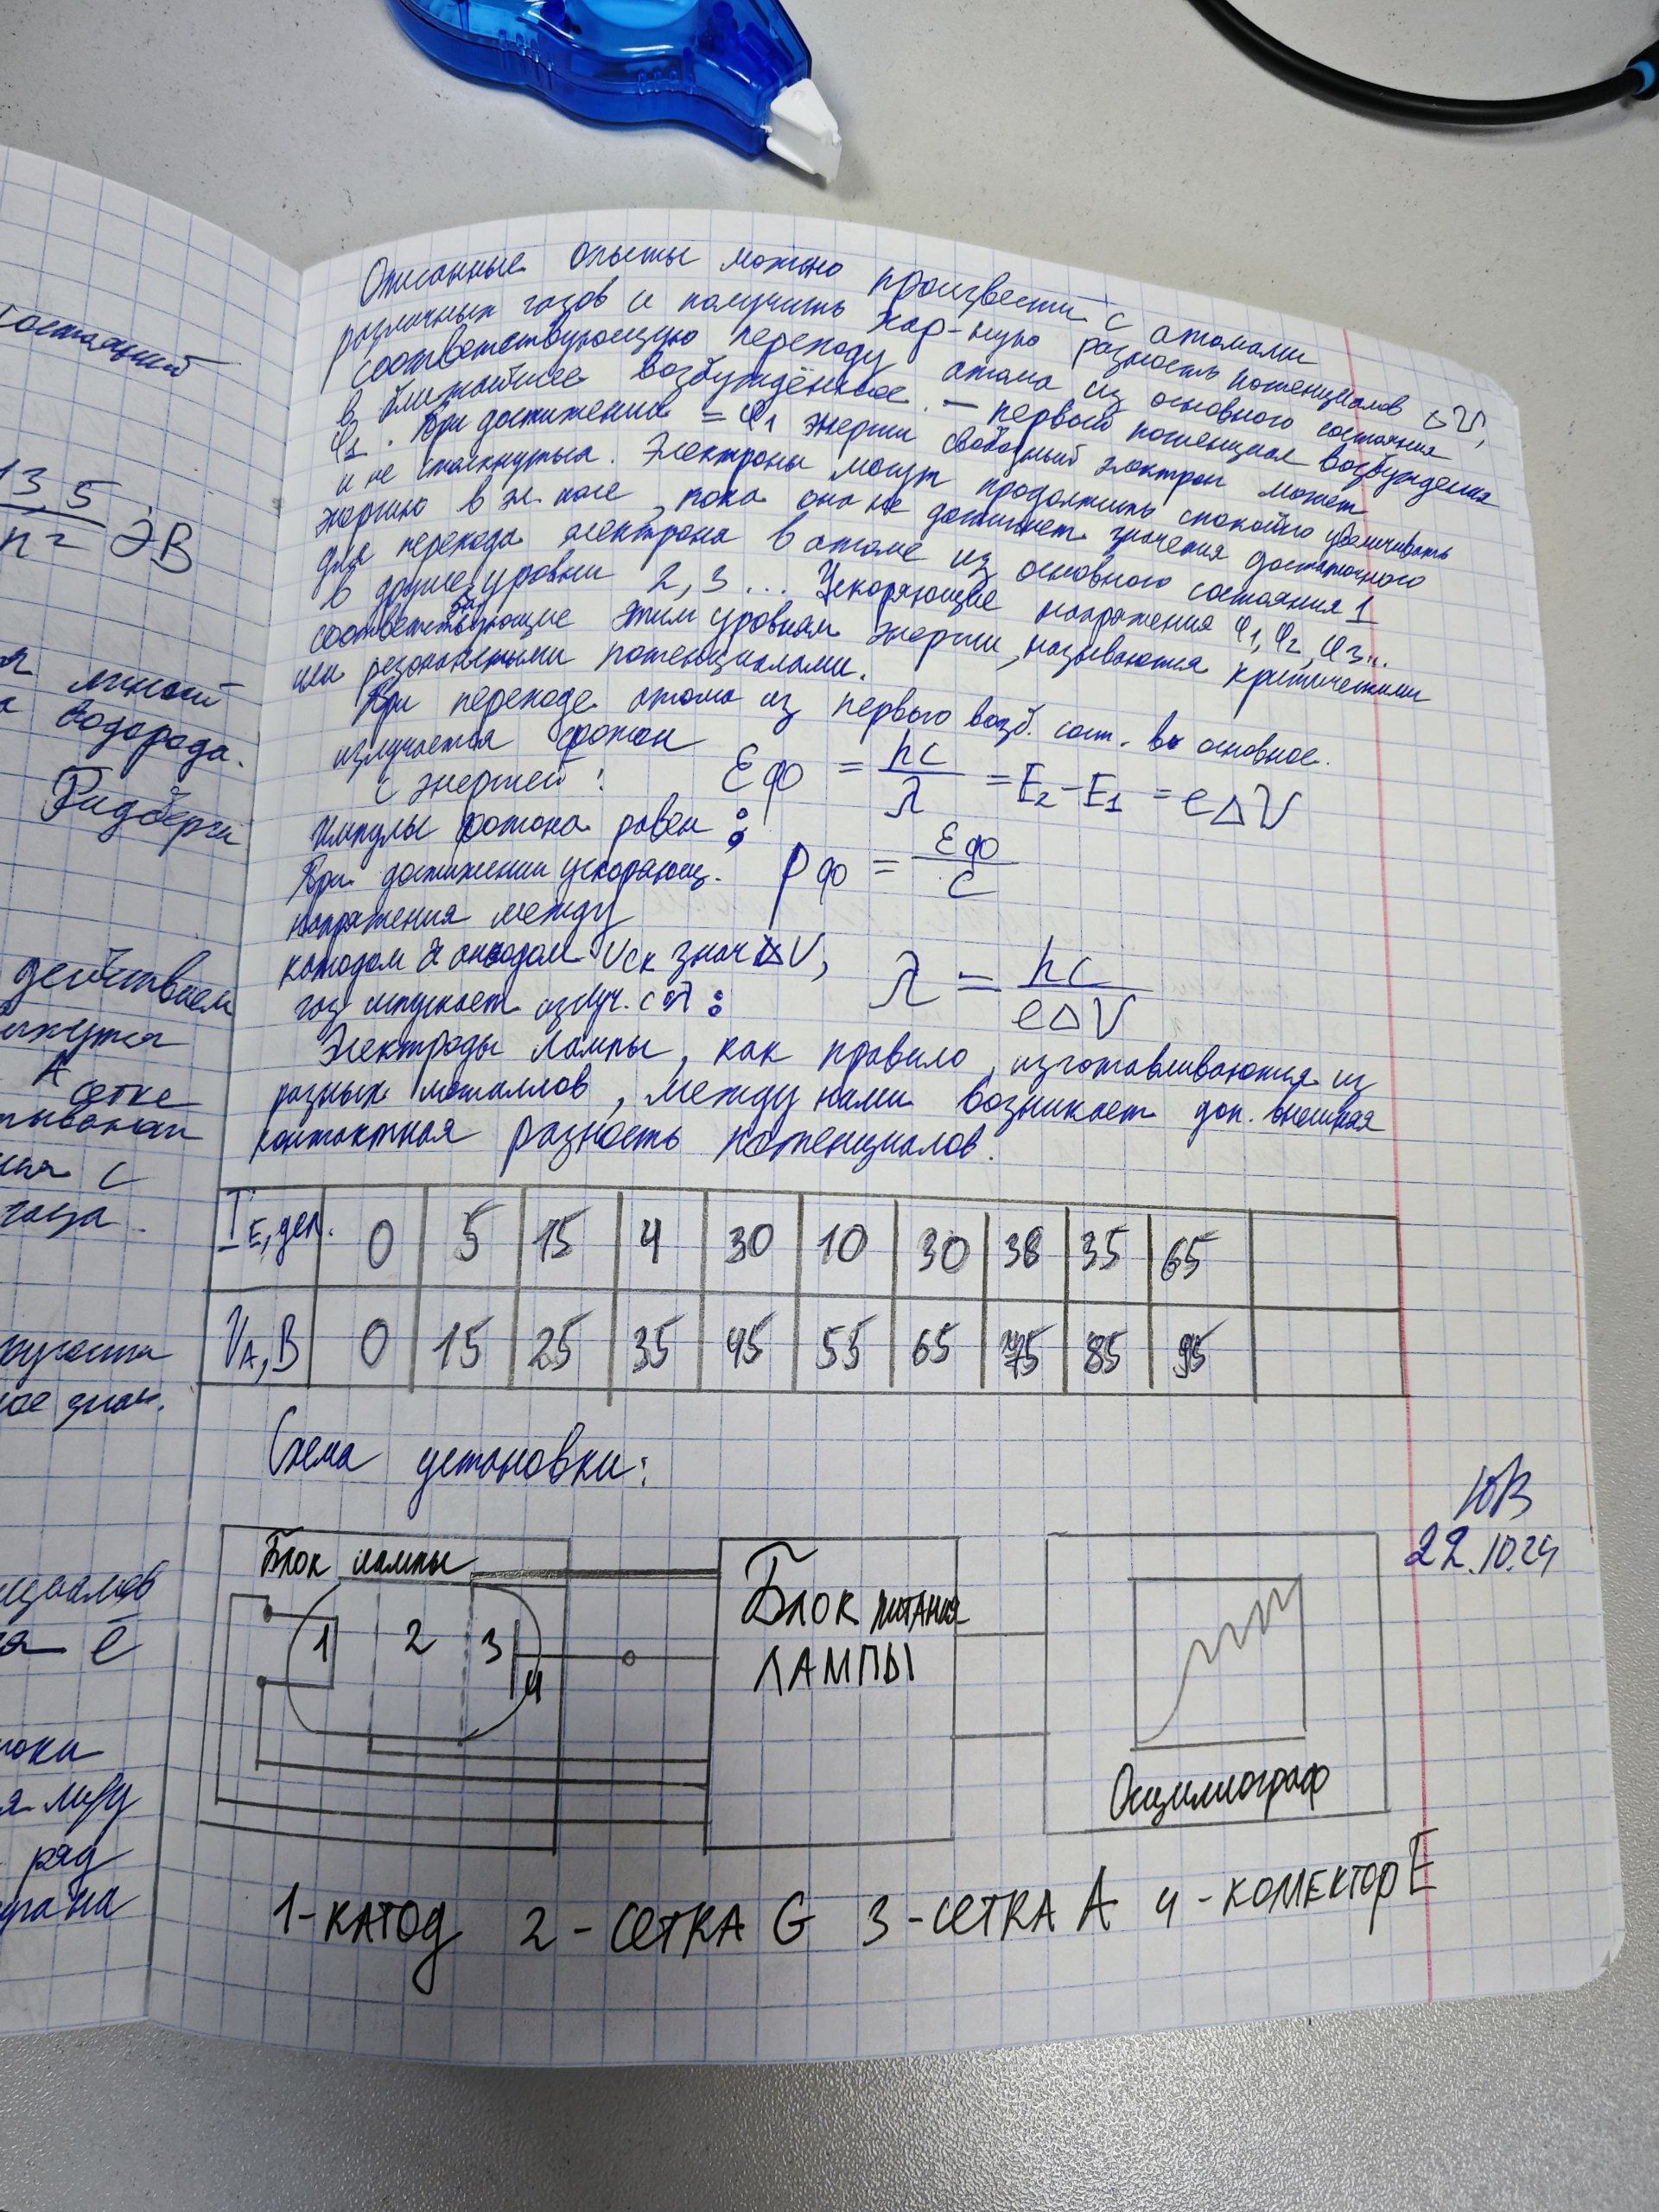 Описанные опыты можно произвести с атомами
различных газов и получить хар-ную разность потенциалов ΔV,
соответствующую переходу атома из основного состояния
в ближайшее возбуждённое. — первый потенциал возбуждения
φ1. При достижении = φ1 энергии свободный электрон может
и не столкнуться. Электроны могут продолжить спокойно увеличивать
энергию в эл. поле, пока она не достигнет значения достаточного
для перехода электрона в атоме из основного состояния 1
в другие уровни 2, 3... Ускоряющие напряжения φ1, φ2, φ3...
соответствующие этим уровням энергии, называются критическими
или резонансными потенциалами.
При переходе атома из первого возб. сост. в основное.
излучается фотон
с энергией: Eфо = hc/λ = E2-E1 = eΔV
Импульс фотона равен: Pфо = Eфо/c
При достижении ускоряющ.
напряжения между
катодом и анодом Vск знач ΔV,
газ испускает излуч. с λ: λ = hc/eΔV
Электроды лампы, как правило, изготавливаются из
разных металлов, между ними возникает доп. внешняя
контактная разность потенциалов.
IE, дел. 0 5 15 4 30 10 30 38 35 65
VA, В 0 15 25 35 45 55 65 75 85 95
Схема установки:
ЮВ
22.10.24
Блок лампы
1 2 3 4
Блок питания
ЛАМПЫ
Осциллограф
1-КАТОД 2-СЕТКА G 3-СЕТКА А 4-КОЛЛЕКТОР E
13,5/n2 ЭВ
водорода.
Ридберги
действием
А
сетке
с
газа.
ое знач.
ē
ряд